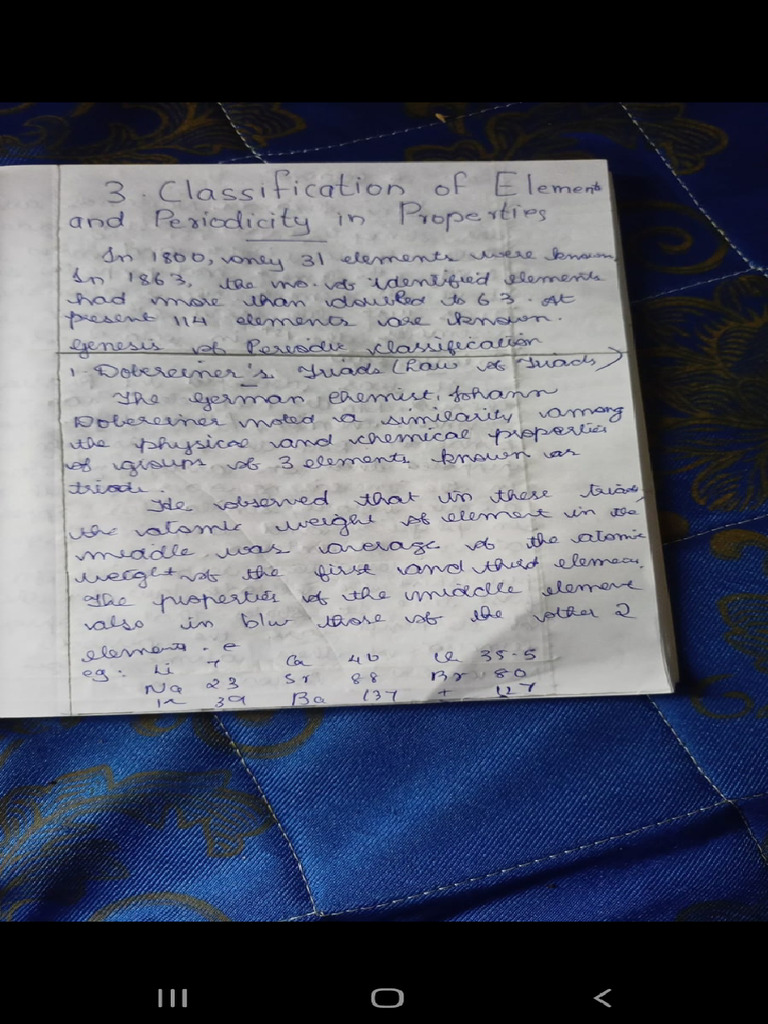 3. Classification of Element
and Periodicity in Properties
In 1800, only 31 elements were known.
In 1863, the no. of identified elements
had more than doubled to 63. At
present 114 elements are known.
Genesis of Periodic classification
1. Dobereiner's Triads (Law of Triads)
The German chemist, Johann
Dobereiner noted a similarity among
the physical and chemical properties
of groups of 3 elements known as
triads.
He observed that in these triads,
the atomic weight of element in the
middle was average of the atomic
weight of the first and third element.
The properties of the middle element
also in b/w those of the other 2
elements.
eg: Li 7 Ca 40 Cl 35.5
Na 23 Sr 88 Br 80
K 39 Ba 137 I 127